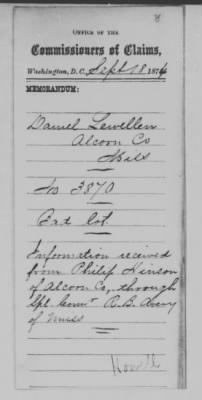 8
OFFICE OF THE
Commissioners of Claims,
Washington, D.C. Sept 18 1874
MEMORANDUM:
Daniel Lewellen
Alcorn Co
Miss
No 3870
Information received
from Philip Hinson
of Alcorn Co, through
Spl. Comr R. B. Avery
of Miss